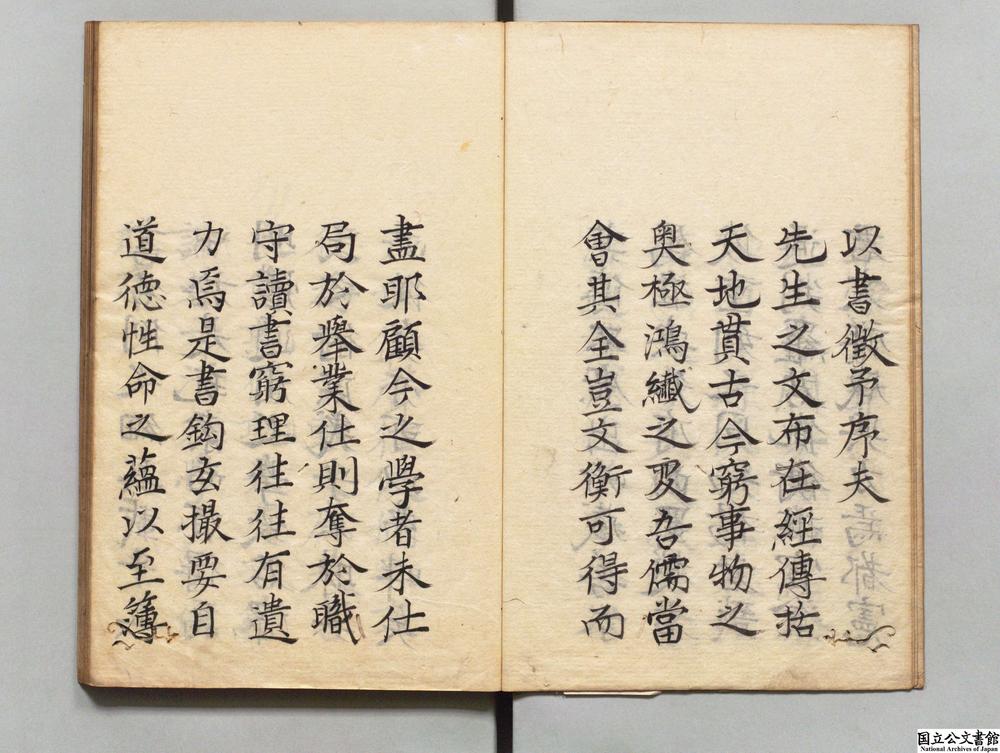 以書徵予序夫
先生之文布在經傳括
天地貫古今窮事物之
奥極鴻纎之変吾儒當
會其全豈文衡可得而
盡耶顧今之學者未仕
局於舉業仕則奪於職
守讀書窮理往往有遺
力焉是書鈎玄撮要自
道德性命之蘊以至簿
国立公文書館
National Archives of Japan